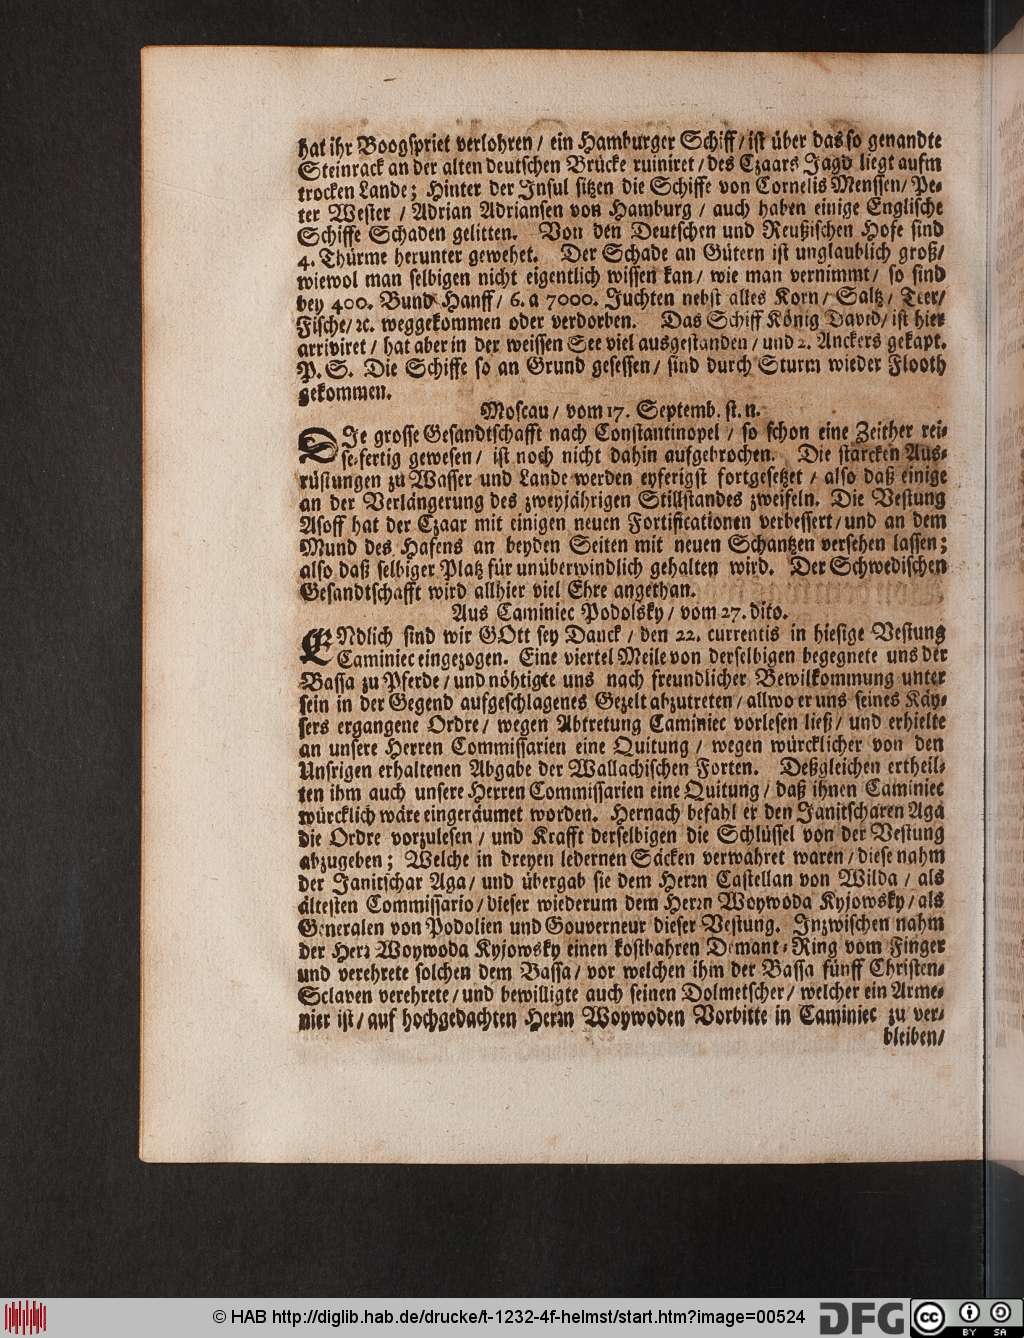 hat ihr Boogspriet verlohren / ein Hamburger Schiff / ist über das so genandte
Steinrack an der alten deutschen Brücke ruiniret / des Czaars Jagd liegt aufm
trocken Lande; Hinter der Insul sitzen die Schiffe von Cornelis Menssen / Pe-
ter Wester / Adrian Adriansen von Hamburg / auch haben einige Englische
Schiffe Schaden gelitten. Von den Deutschen und Reußischen Hofe sind
4. Thürme herunter gewehet. Der Schade an Gütern ist unglaublich groß /
wiewol man selbigen nicht eigentlich wissen kan / wie man vernimmt / so sind
bey 400. Bund Hanff / 6. a 7000. Juchten nebst alles Korn / Saltz / Teer /
Fische / ꝛc. weggekommen oder verdorben. Das Schiff König David / ist hier
arriviret / hat aber in der weissen See viel ausgestanden / und 2. Anckers gekapt.
P. S. Die Schiffe so an Grund gesessen / sind durch Sturm wieder Flooth
gekommen.
Moscau / vom 17. Septemb. st. n.
DIe grosse Gesandtschafft nach Constantinopel / so schon eine Zeither rei-
se-fertig gewesen / ist noch nicht dahin aufgebrochen. Die starcken Aus-
rüstungen zu Wasser und Lande werden eyferigst fortgesetzet / also daß einige
an der Verlängerung des zweyjährigen Stillstandes zweifeln. Die Vestung
Asoff hat der Czaar mit einigen neuen Fortificationen verbessert / und an dem
Mund des Hafens an beyden Seiten mit neuen Schantzen versehen lassen;
also daß selbiger Platz für unüberwindlich gehalten wird. Der Schwedischen
Gesandtschafft wird allhier viel Ehre angethan.
Aus Caminiec Podolsky / vom 27. dito.
ENdlich sind wir GOtt sey Danck / den 22. currentis in hiesige Vestung
Caminiec eingezogen. Eine viertel Meile von derselbigen begegnete uns der
Bassa zu Pferde / und nöhtigte uns nach freundlicher Bewillkommung unter
sein in der Gegend aufgeschlagenes Gezelt abzutreten / allwo er uns seines Käy-
sers ergangene Ordre / wegen Abtretung Caminiec vorlesen ließ / und erhielte
an unsere Herren Commissarien eine Quitung / wegen würcklicher von den
Unsrigen erhaltenen Abgabe der Wallachischen Forten. Deßgleichen ertheil-
ten ihm auch unsere Herren Commissarien eine Quitung / daß ihnen Caminiec
würcklich wäre eingeräumet worden. Hernach befahl er den Janitscharen Aga
die Ordre vorzulesen / und Krafft derselbigen die Schlüssel von der Vestung
abzugeben; Welche in dreyen ledernen Säcken verwahret waren / diese nahm
der Janitschar Aga / und übergab sie dem Herrn Castellan von Wilda / als
ältesten Commissario / dieser wiederum dem Herrn Woywoda Kyjowsky / als
Generalen von Podolien und Gouverneur dieser Vestung. Inzwischen nahm
der Herr Woywoda Kyjowsky einen kostbahren Demant-Ring vom Finger
und verehrete solchen dem Bassa / vor welchen ihm der Bassa fünff Christen-
Sclaven verehrete / und bewilligte auch seinen Dolmetscher / welcher ein Arme-
nier ist / auf hochgedachten Herrn Woywoden Vorbitte in Caminiec zu ver-
bleiben /
© HAB http://diglib.hab.de/drucke/t-1232-4f-helmst/start.htm?image=00524
DFG
cc BY SA